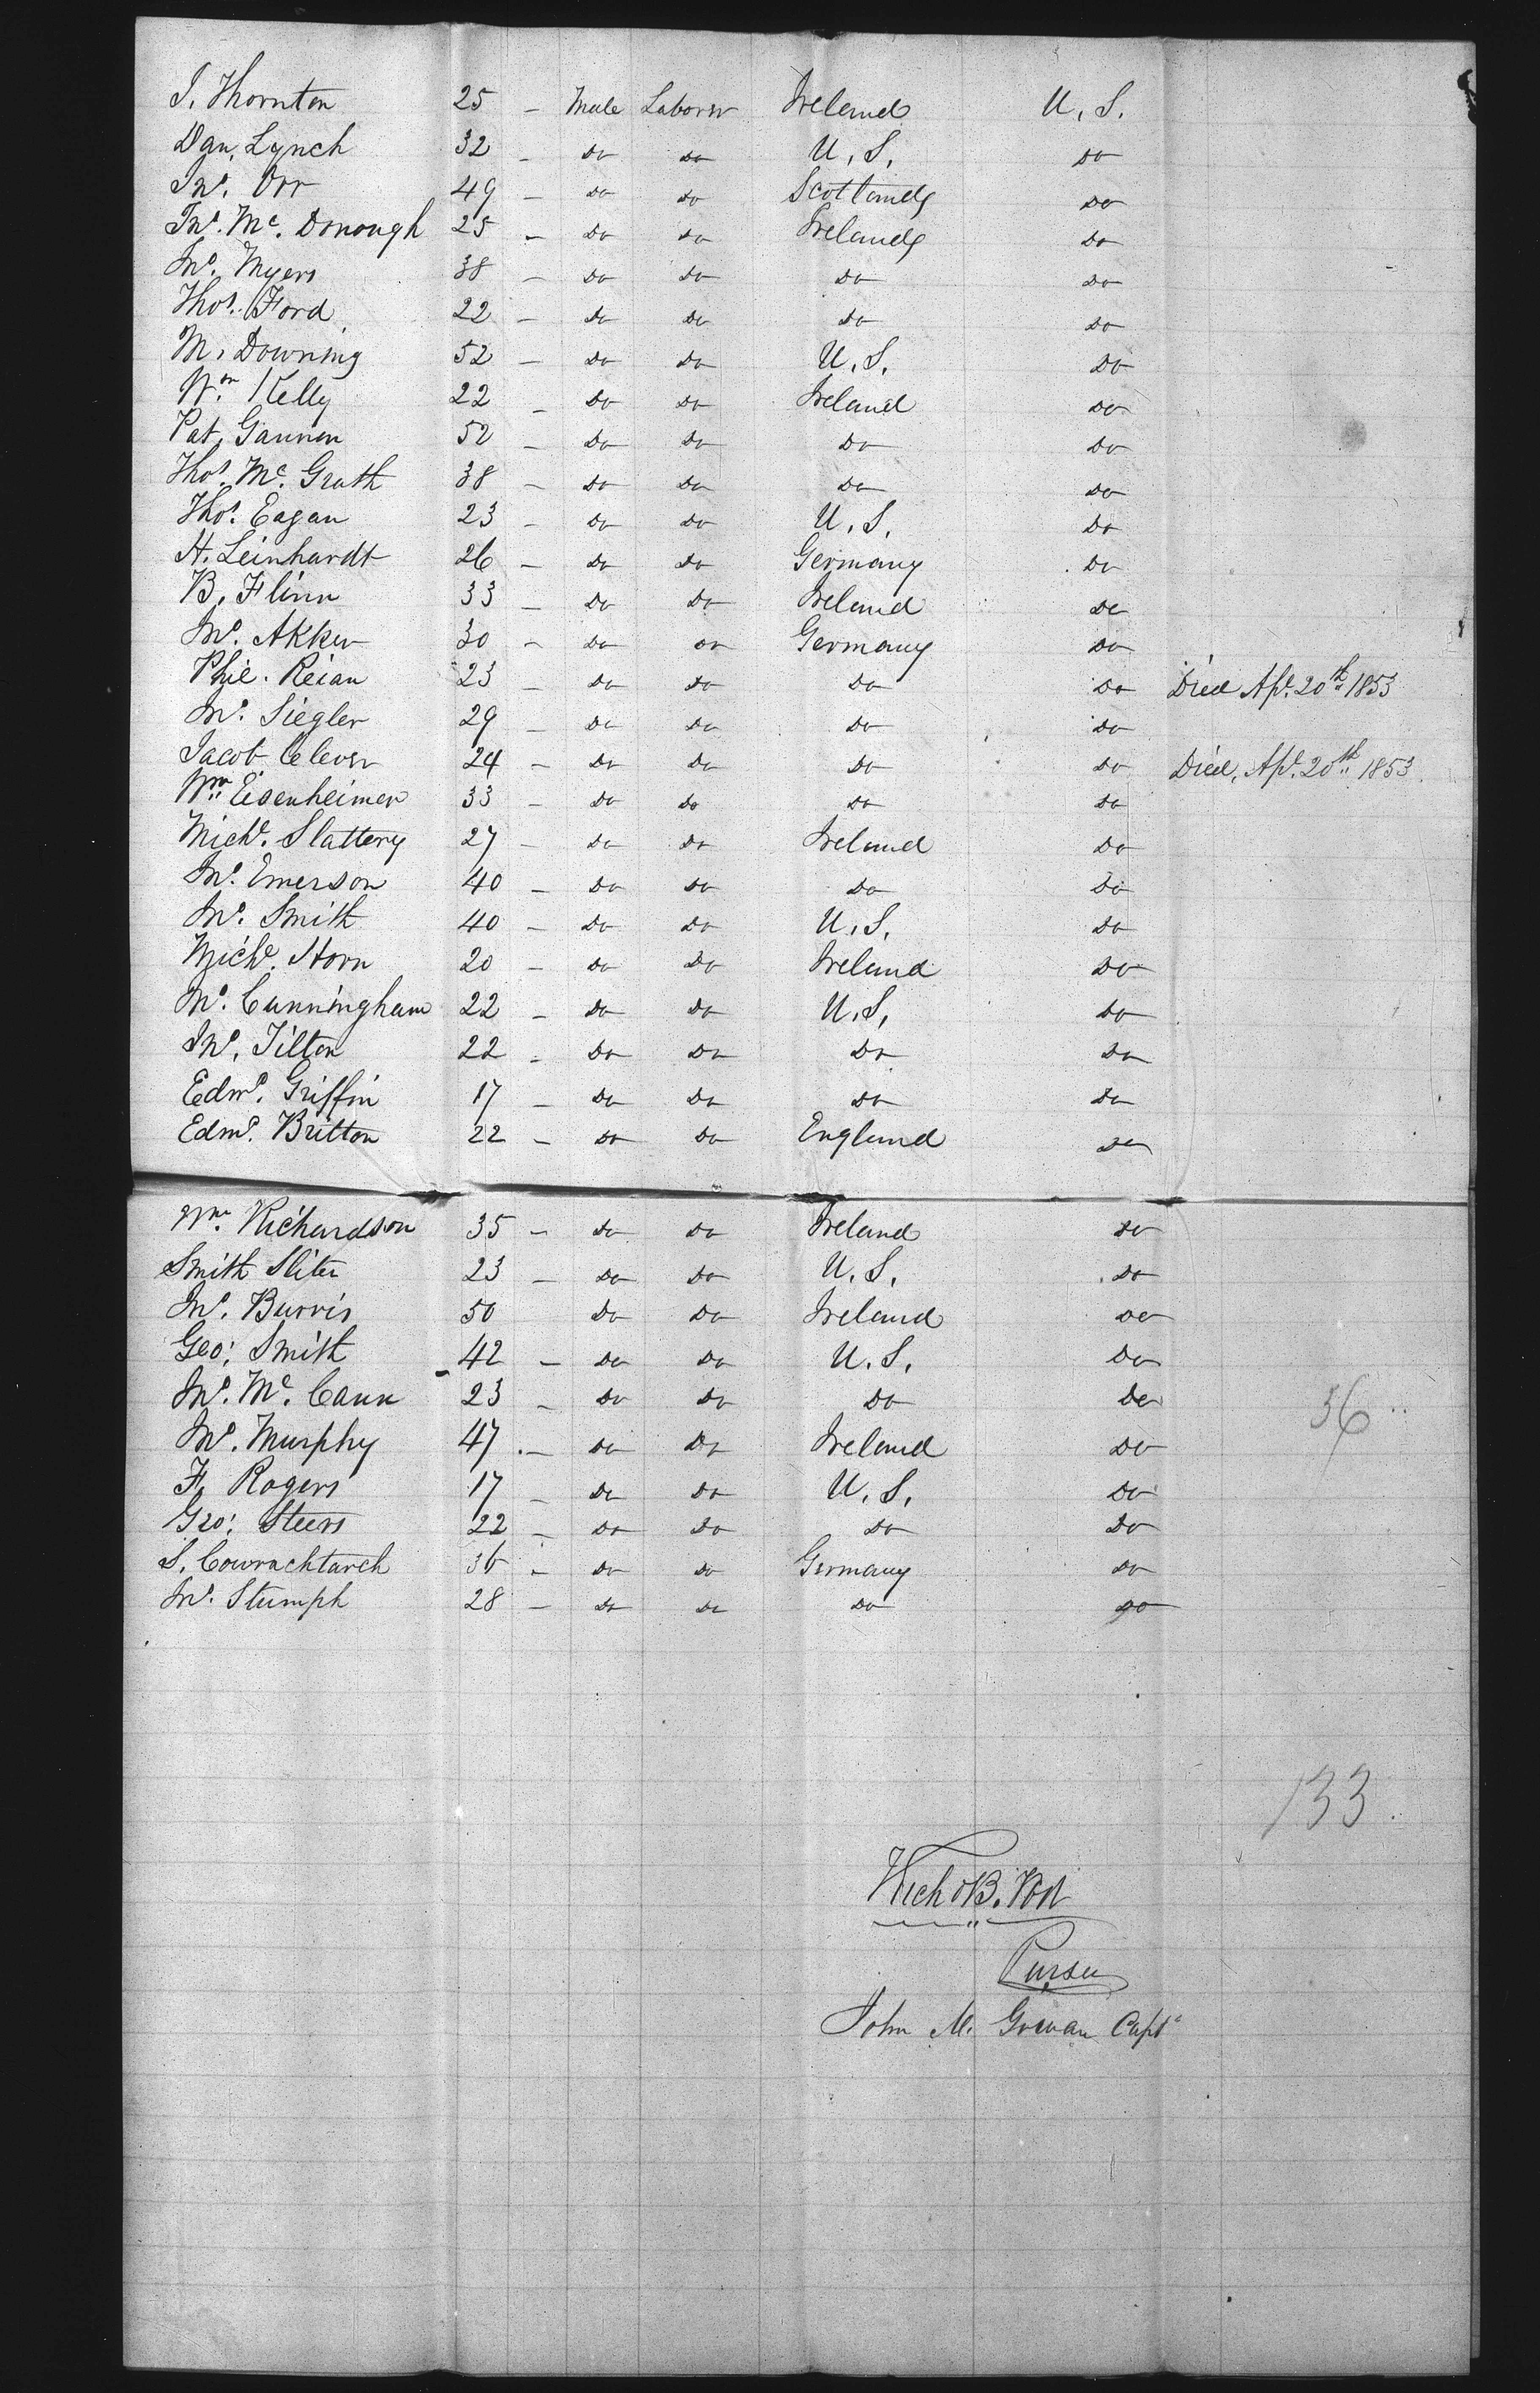 J. Thornton 25 - Male Laborer Ireland U. S.
Dan. Lynch 32 - Do Do U. S. Do
Jno. Orr 49 - Do Do Scotland Do
Jno. Mc. Donough 25 - Do Do Ireland Do
Jno. Myers 38 - Do Do Do Do
Thos. Ford 22 - Do Do Do Do
M. Downing 52 - Do Do U. S. Do
Wm. Kelly 22 - Do Do Ireland Do
Pat. Gannon 52 - Do Do Do Do
Thos. Mc. Grath 38 - Do Do Do Do
Thos. Eagan 23 - Do Do U. S. Do
H. Leinhardt 26 - Do Do Germany Do
B. Flinn 33 - Do Do Ireland Do
Jno. Akker 30 - Do Do Germany Do
Phil. Reian 23 - Do Do Do Do Died Apl. 20th 1853
Jno. Siegler 29 - Do Do Do Do
Jacob Clever 24 - Do Do Do Do Died, Apl. 20th 1853.
Wm. Eisenheimer 33 - Do Do Do Do
Michl. Slattery 27 - Do Do Ireland Do
Jno. Emerson 40 - Do Do Do Do
Jno. Smith 40 - Do Do U. S. Do
Michl. Horn 20 - Do Do Ireland Do
Jno. Cunningham 22 - Do Do U. S. Do
Jno. Tilton 22 - Do Do Do Do
Edmd. Griffin 17 - Do Do Do Do
Edmd. Britton 22 - Do Do England Do
Wm. Richardson 35 - Do Do Ireland Do
Smith Sliter 23 - Do Do U. S. Do
Jno. Burris 50 Do Do Ireland Do
Geo: Smith 42 - Do Do U. S. Do
Jno. Mc. Cann 23 - Do Do Do Do
36
Jno. Murphy 47 - Do Do Ireland Do
F. Rogers 17 - Do Do U. S. Do
Geo: Steers 22 - Do Do Do Do
S. 36 - Do Do Germany Do
Jno. Stumph 28 - Do Do Do Do
133
B. Post
Purser
John M. Gowan Capt